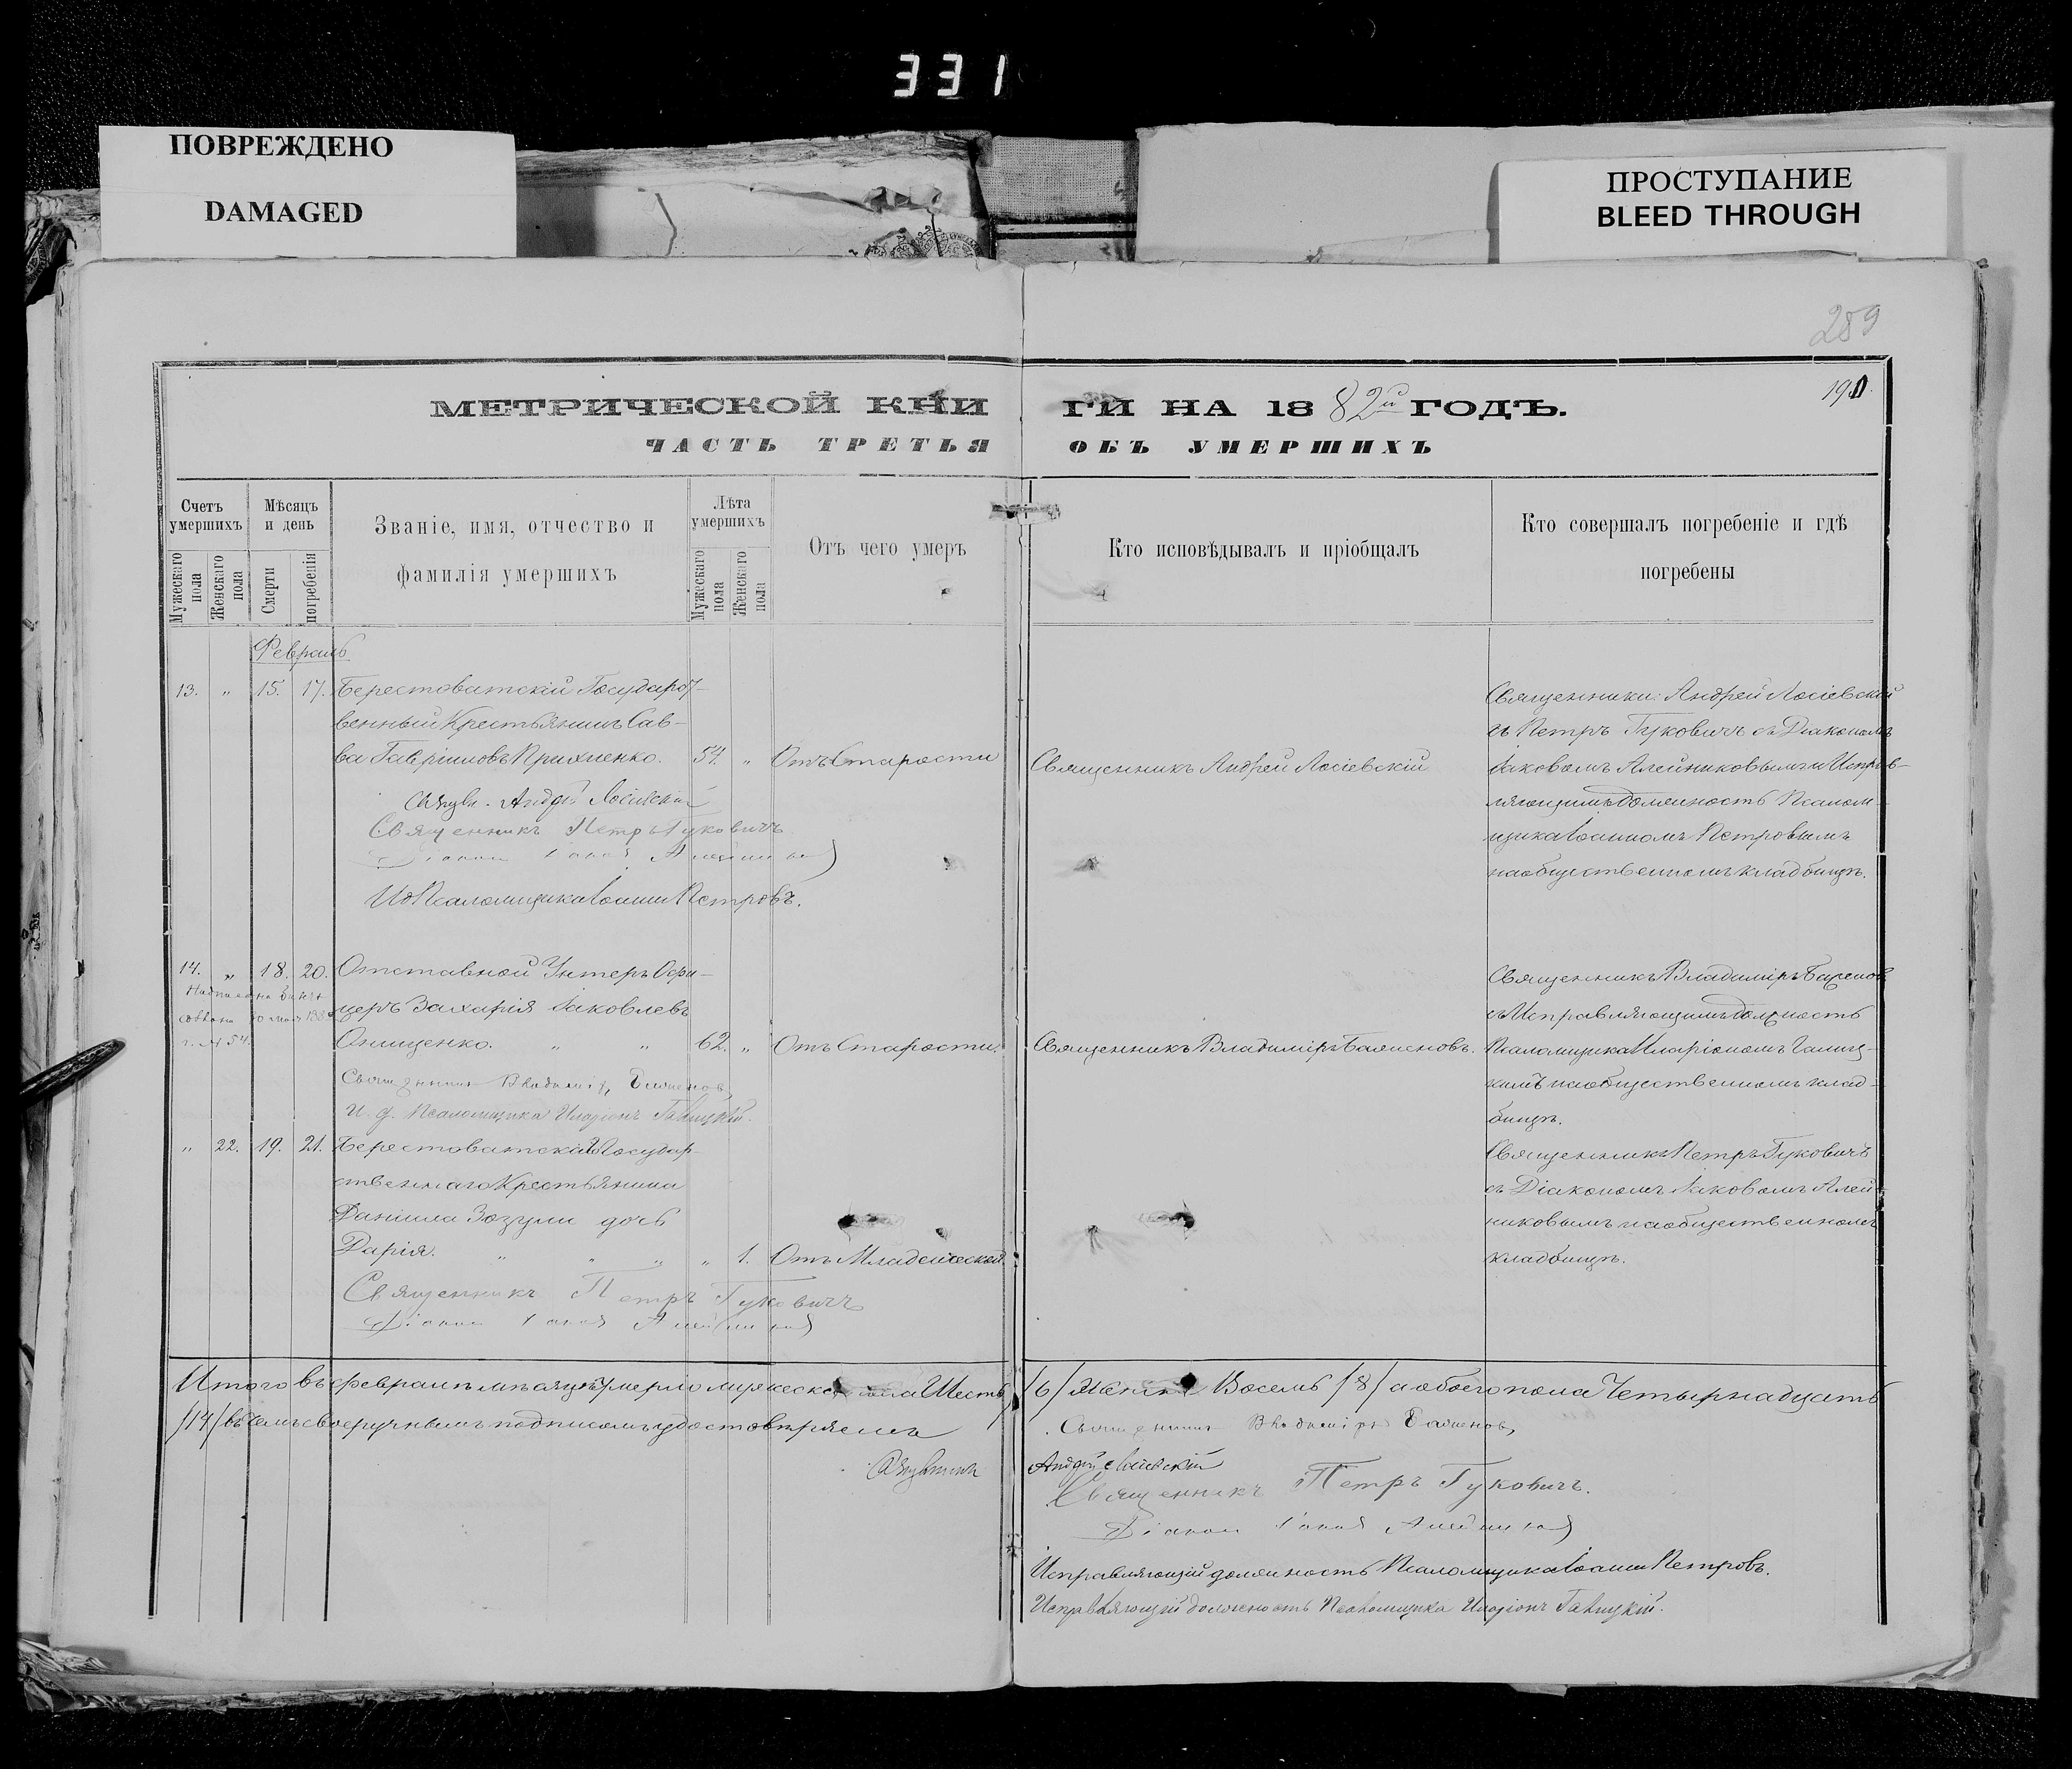 331
ПОВРЕЖДЕНО
DAMAGED
ПРОСТУПАНИЕ
BLEED THROUGH
289
190.
МЕТРИЧЕСКОЙ КНИГИ НА 1882й ГОДЪ.
ЧАСТЬ ТРЕТЬЯ ОБЪ УМЕРШИХЪ
Счетъ умершихъ
Мужескаго пола
Женскаго пола
Мѣсяцъ и день
Смерти
погребенія
Званіе, имя, отчество и фамилія умершихъ
Лѣта умершихъ
Мужескаго пола
Женскаго пола
Отъ чего умеръ
Кто исповѣдывалъ и пріобщалъ
Кто совершалъ погребеніе и гдѣ погребены
Февраль
13. " 15. 17. Берестоватскій Государст-
венный Крестьянинъ Сав-
ва Гавріиловъ Прихненко. 54. " Отъ Старости
Священникъ Андрей Лосіевскій
Священники: Андрей Лосіевскій
и Петръ Гуковичъ съ Діакономъ
Іаковомъ Алейниковымъ и Исправ-
ляющимъ должность Псалом-
щика Іоанномъ Петровымъ
на общественномъ кладбищѣ.
Андрей Лосіевскій
Священникъ Петръ Гуковичъ
Діаконъ Іаковъ Алейниковъ
ИД Псаломщика Іоаннъ Петровъ.
14. " 18. 20. Отставной Унтеръ Офи-
церъ Захарія Іаковлевъ
Онищенко. " " 62. " Отъ Старости.
г. № 54.
Священникъ Владиміръ Баженовъ.
Священникъ Владиміръ Баженовъ
съ Исправляющимъ должность
Псаломщика Иларіономъ Галиц-
кимъ на общественномъ клад-
бищѣ.
Священникъ Владиміръ Баженовъ
И. д. Псаломщика Иларіонъ Галицкій.
" 22. 19. 21. Берестоватскаго Государ-
ственнаго Крестьянина
Даніила Зозули дочь
Дарія. " " " " 1. Отъ Младенческой
Священникъ Петръ Гуковичъ
съ Діакономъ Іаковомъ Алей-
никовымъ на общественномъ
кладбищѣ.
Священникъ Петръ Гуковичъ
Діаконъ Іаковъ Алейниковъ
Итого въ февралѣ мѣсяцѣ умерло мужеска пола Шесть /6/ Женска Восемь /8/ а обоего пола Четырнадцать
/14/ въ чемъ своеручнымъ подписомъ удостовѣряемъ
Священникъ Владиміръ Баженовъ,
Священникъ Андрей Лосіевскій
Священникъ Петръ Гуковичъ.
Діаконъ Іаковъ Алейниковъ
Исправляющій должность Псаломщика Іоаннъ Петровъ.
Исправляющій должность Псаломщика Иларіонъ Галицкій.